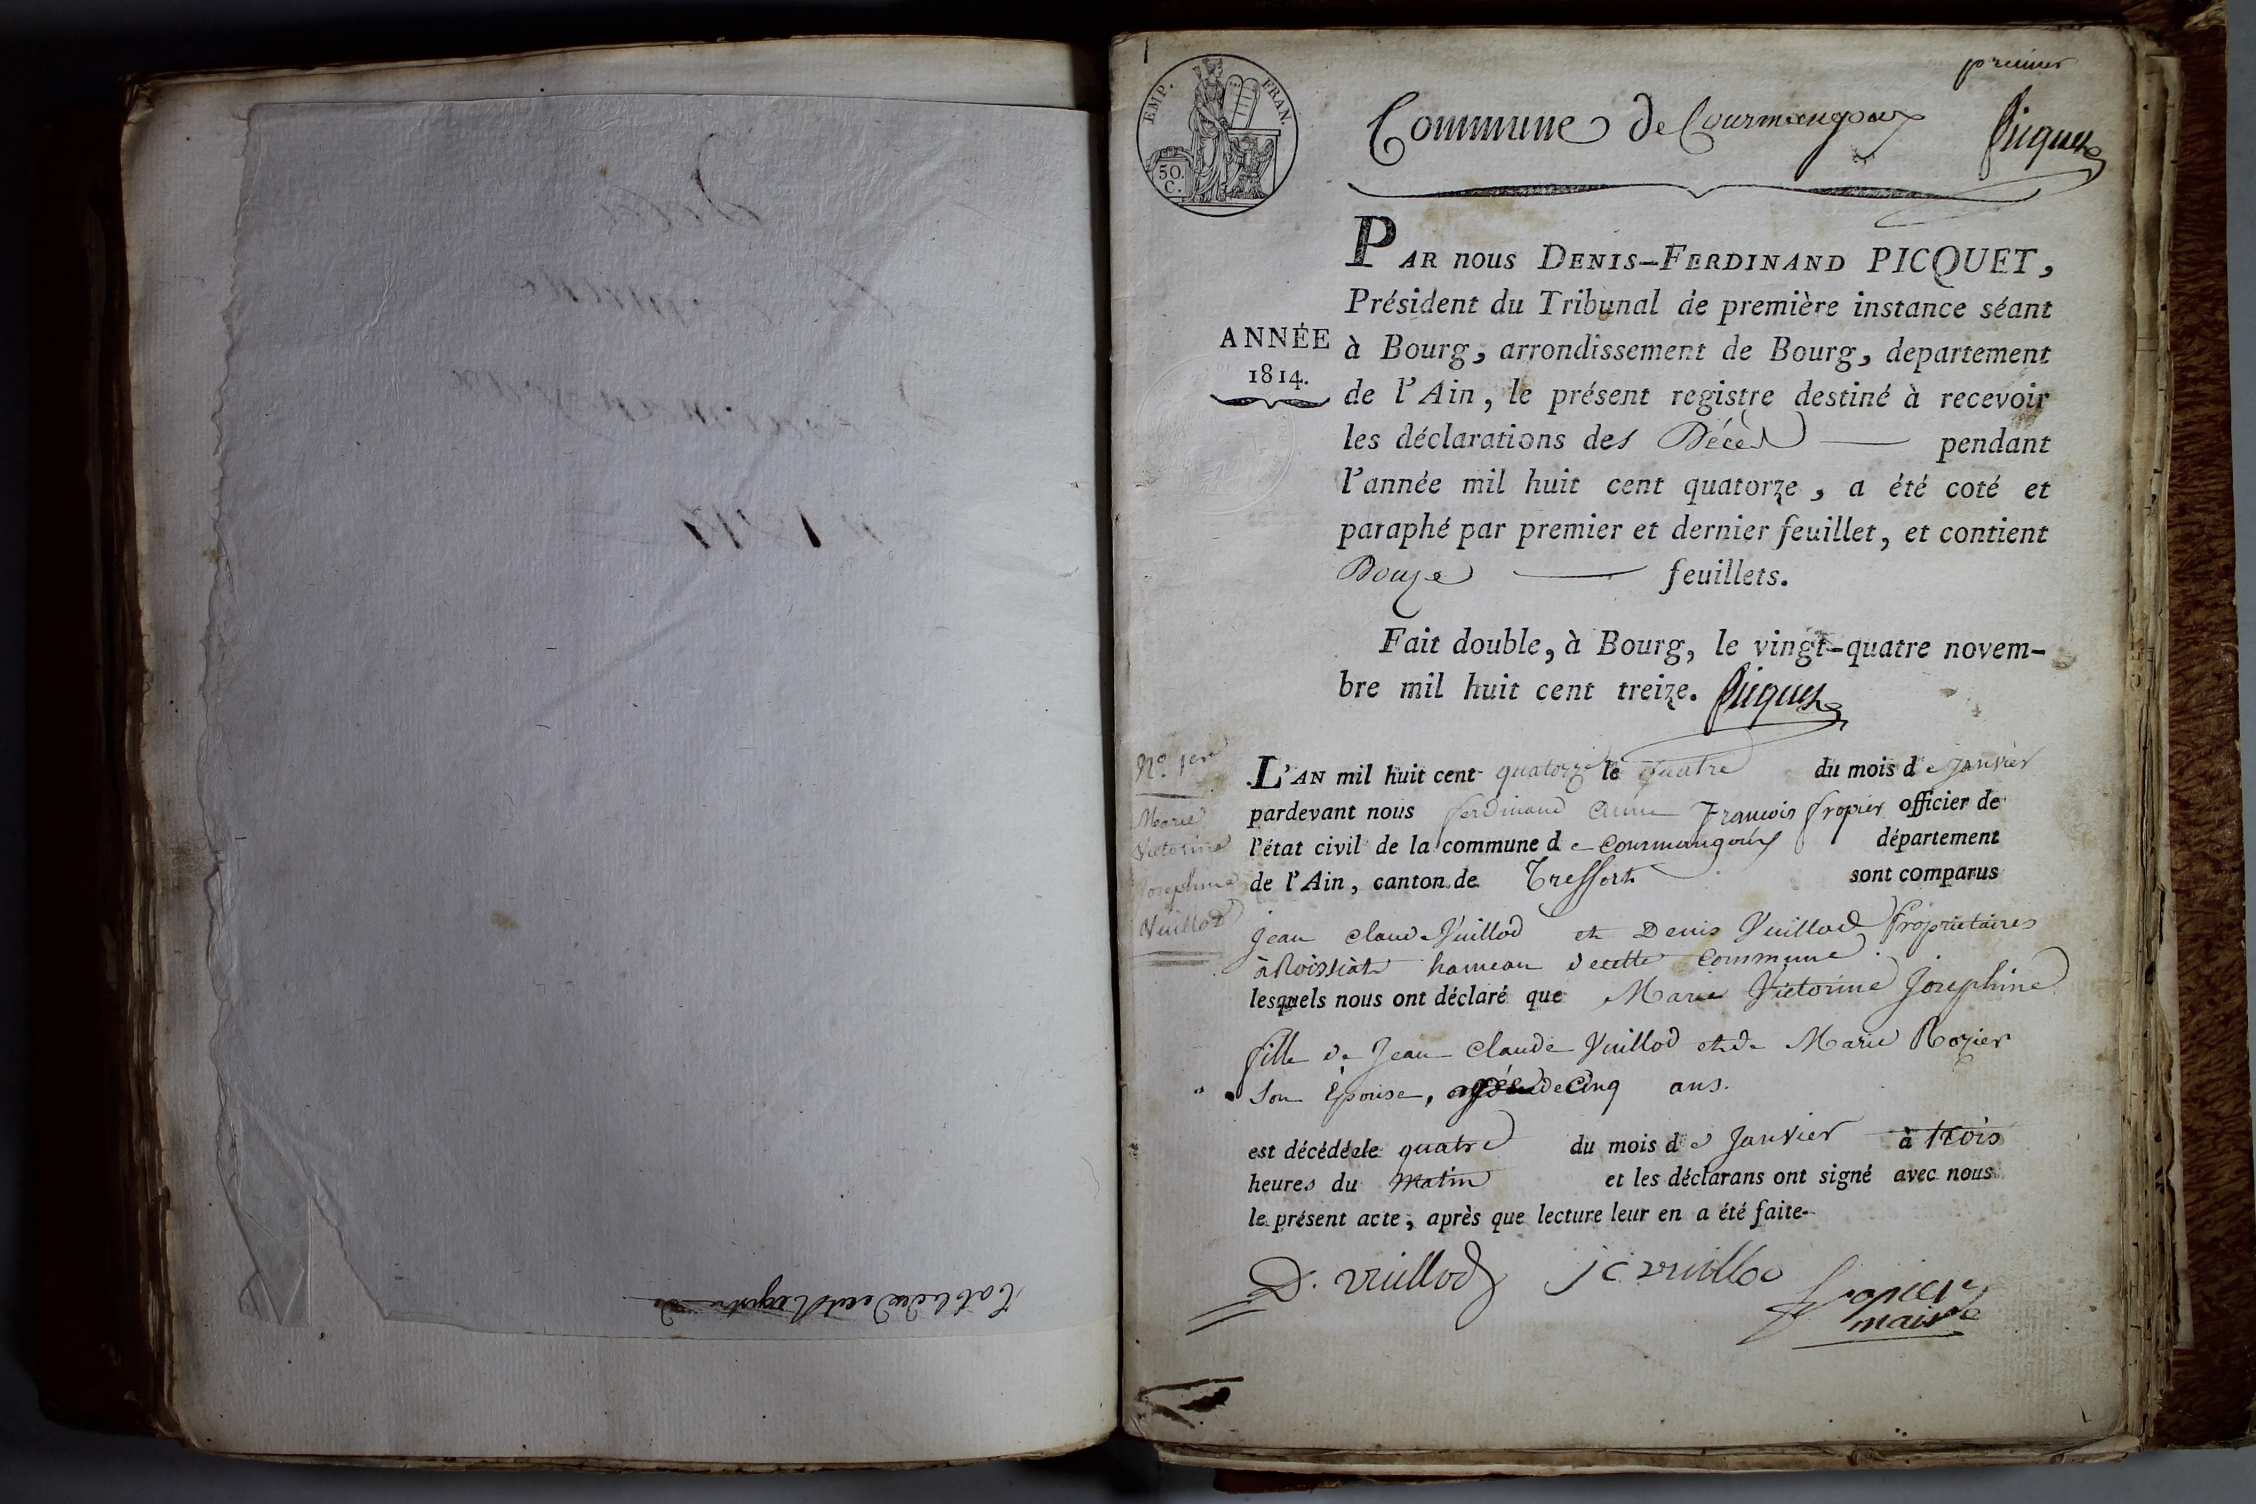 Table du dit Registre de
premier
EMP. FRAN.
50.
C.
Commune de Courmangoux
Picquet
PAR nous DENIS-FERDINAND PICQUET,
Président du Tribunal de première instance séant
ANNÉE
1814.
à Bourg, arrondissement de Bourg, departement
de l'Ain, le présent registre destiné à recevoir
les déclarations des Décès pendant
l'année mil huit cent quatorze, a été coté et
paraphé par premier et dernier feuillet, et contient
Douze feuillets.
Fait double, à Bourg, le vingt-quatre novem-
bre mil huit cent treize. Picquet
N.o 1er
Marie
Victorine
Josephine
Vuillod
L'AN mil huit cent quatorze le quatre du mois de Janvier
pardevant nous ferdinand Anne François fropier officier de
l'état civil de la commune de Courmangoux département
de l'Ain, canton de Treffort sont comparus
Jean Claude Vuillod et Denis Vuillod Propriétaires
à Roissiat hameau de cette Commune.
lesquels nous ont déclaré que Marie Victorine Josephine
fille de Jean Claude Vuillod et de Marie Rozier
Son Épouse, agée de Cinq ans.
est décédée le quatre du mois de Janvier à trois
heures du matin et les déclarans ont signé avec nous
le présent acte, après que lecture leur en a été faite.
D. vuillod j c vuillod fropier
maire